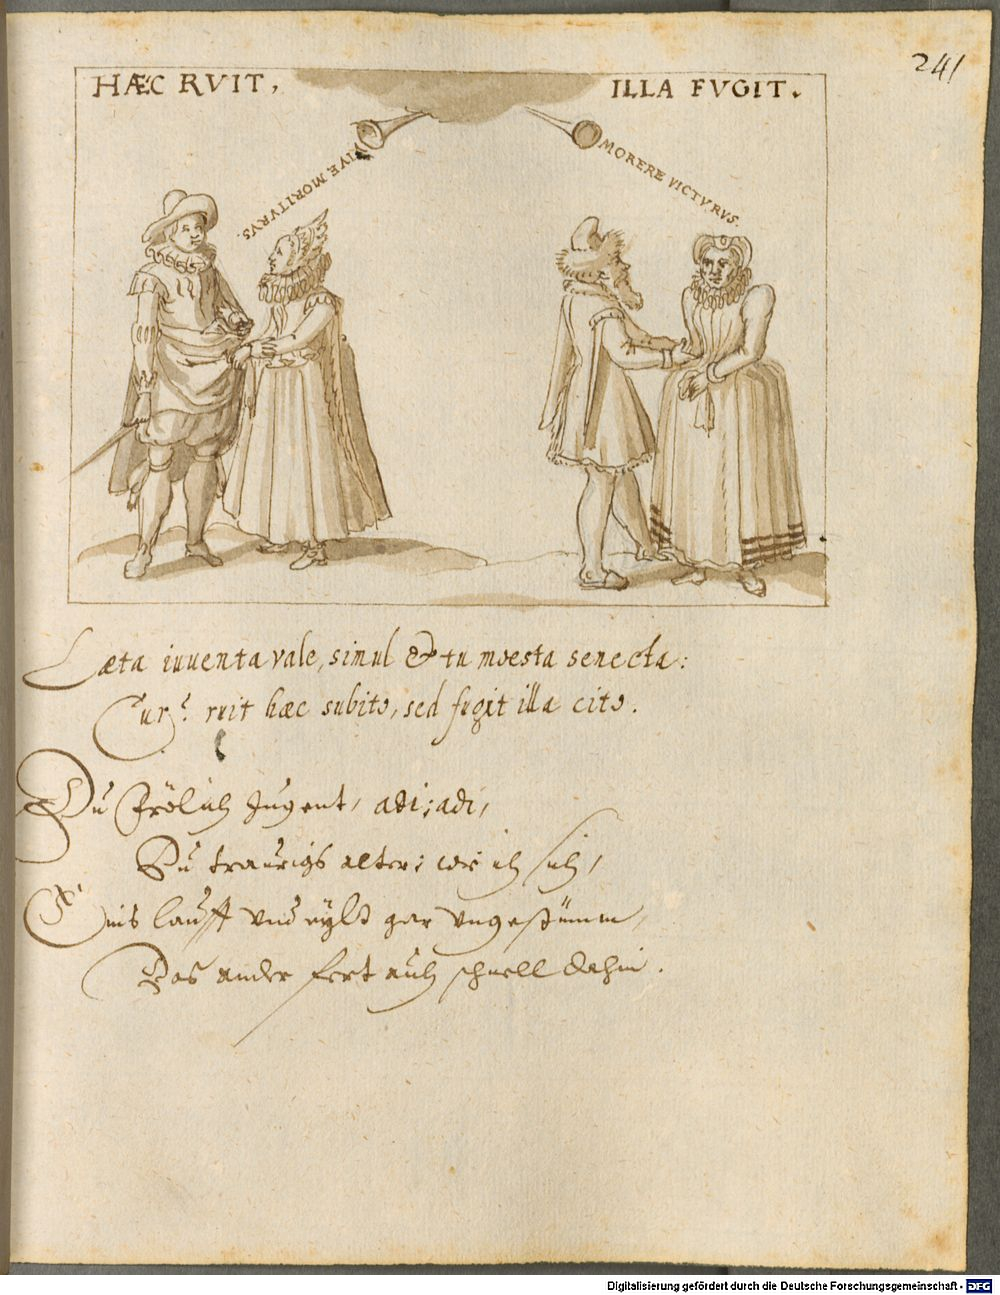 241
HÆC RVIT,
ILLA FVGIT.
VIVE MORITVRVS.
MORERE VICTVRVS.
Læta iuuenta vale, simul & tu moesta senecta:
ruit hæc subito, sed fugit illa cito.
Du Frölich Jugent, adi, adi,
Du traurigs alter: wie ich sich,
Eins laufft vnd eylt gar vngestümm,
Das ander fert auch schnell dahin.
Digitalisierung gefördert durch die Deutsche Forschungsgemeinschaft - DFG